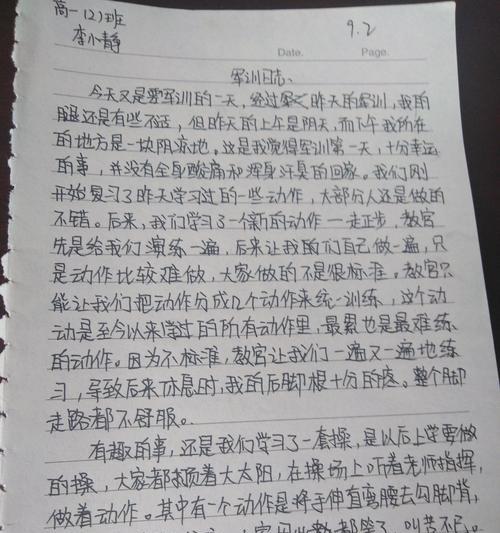 高一(2)班
李小静
9.2
Date. Page.
军训日志、
今天又是军训的一天,经过昨天的军训,我的
腿还是有些不舌,但昨天的上午是阴天,而下午我所在
的地方是一块阴凉地。这是我觉得军训第一天,十分幸运
的事,并没有全身酸痛和浑身汗臭的回家。我们刚
开始复习了昨天学习过的一些动作,大部分人还是做的
不错。后来,我们学习了一个新的动作一走正步,教官
先是给我们演练一遍,后来让我们自己做一遍,只
是动作比较难做,大家做的不是很标准。教官只
能让我们把动作分成几个动作来统一训练,这个动
动是至今以来学过的所有动作里,最累也是最难练
的动作。因为不标准,教官让我们一遍又一遍地练
习,导致后来休息时,我的后脚根十分的疼。整个脚
走路都不舒服。
有趣的事,还是我们学习了一套操,是以后上学要做
的操,大家都顶着大太阳,在操场上听着老师指挥,
做着动作。其中有一个动作是将手伸直弯腰去勾脚背,
都笑了,叫苦不已。